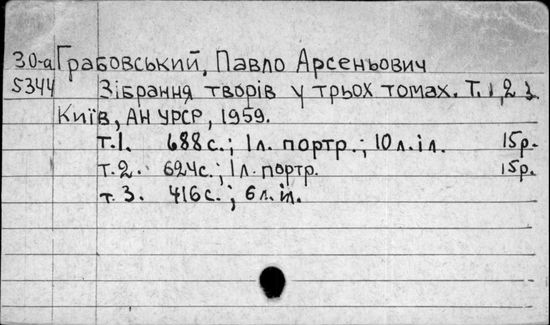 30-а Грабовський, Павло Арсеньович
5344 Зібрання творів у трьох томах. Т. 1, 2 3.
Київ, АН УРСР, 1959.
т. 1. 688 с.; 1 л. портр.; 10 л. іл. 15 р.
т. 2. 624 с.; 1 л. портр. 15 р.
т. 3. 416 с.; 6 л. іл.